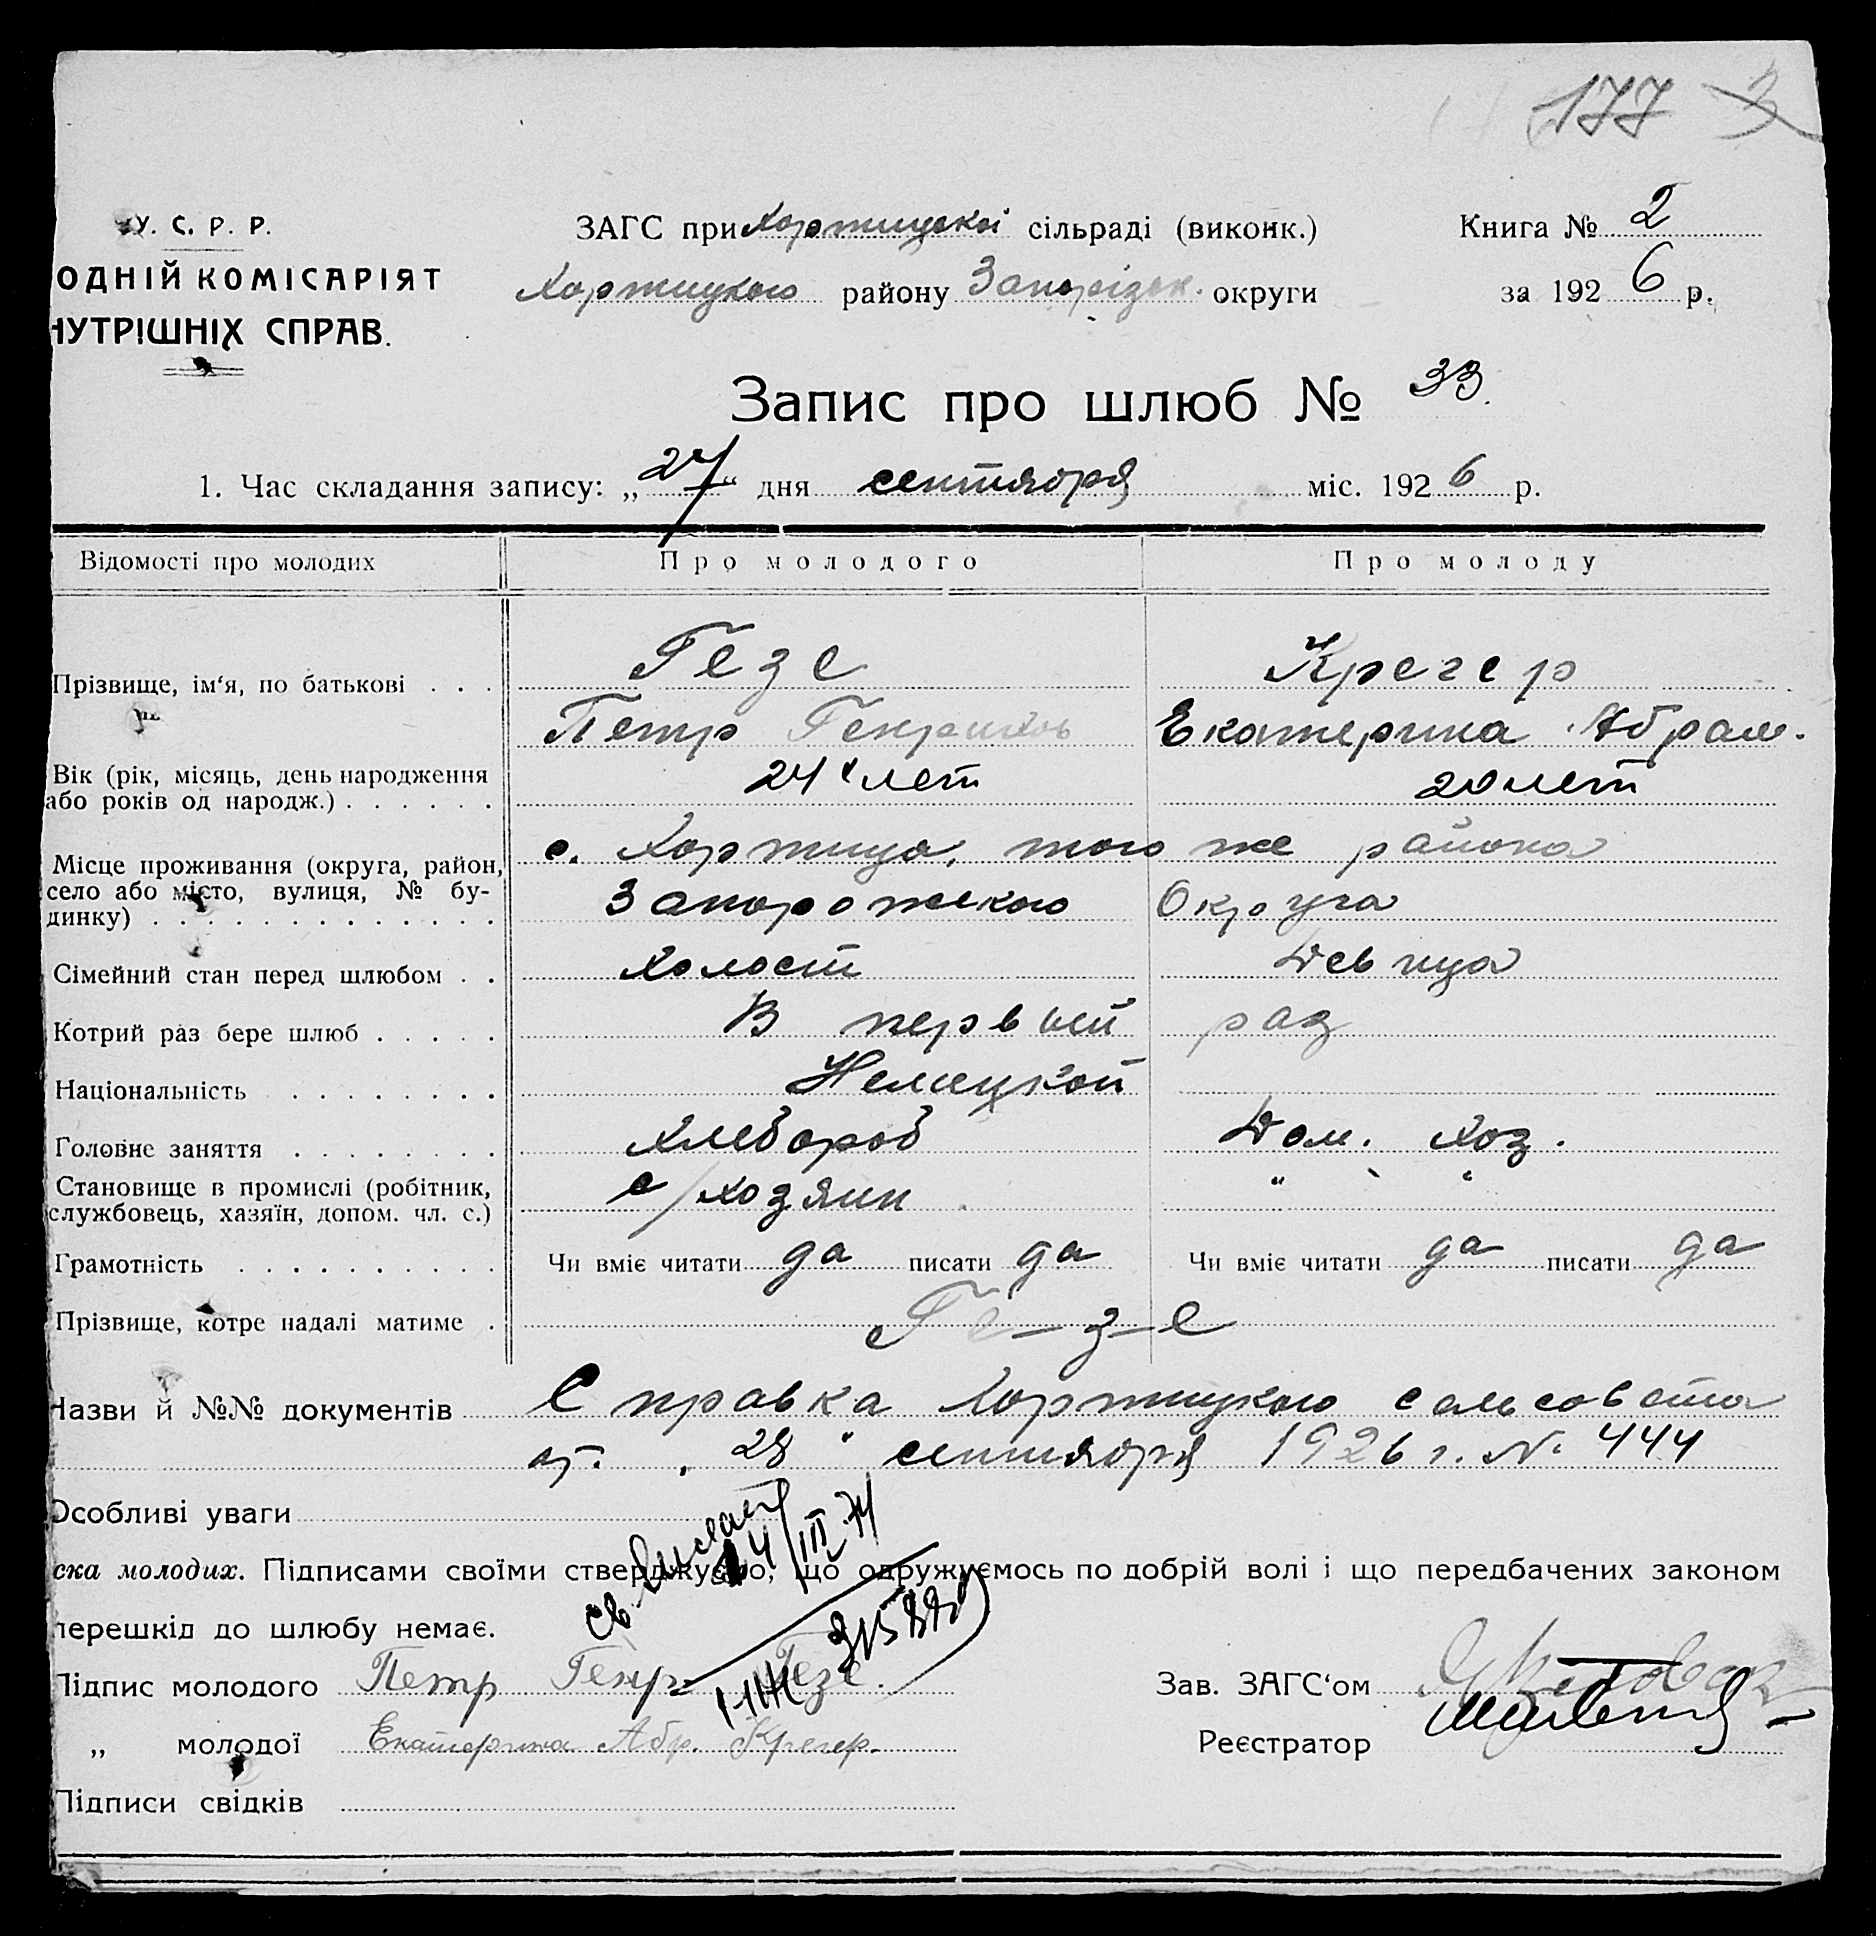 177 3
У. С. Р. Р.
ОДНІЙ КОМІСАРІЯТ
НУТРІШНІХ СПРАВ.
ЗАГС при Хортицькой сільраді (виконк.)
Хортицкого району Запорізьк. округи
Книга № 2
за 1926 р.
Запис про шлюб № 33.
1. Час складання запису: „27“ дня сентября міс. 1926 р.
Відомості про молодих Про молодого Про молоду
Прізвище, ім‘я, по батькові . . . Гезе Крегер
Петр Генрихов Екатерина Абрам.
Вік (рік, місяць, день народження
або років од народж.) . . . . . . 24 лет 20 лет
Місце проживання (округа, район,
село або місто, вулиця, № бу-
динку) . . . . . . . . . . . . . с. Хортица, того же района
Запорожского Округа
Сімейний стан перед шлюбом . . Холост Девица
Котрий раз бере шлюб . . . . . В первый раз
Національність . . . . . . . . Немецкой
Головне заняття . . . . . . . . Хлебороб Дом. хоз.
Становище в промислі (робітник,
службовець, хазяїн, допом. чл. с.) с/хозяин " "
Грамотність . . . . . . . . . . Чи вміє читати да писати да Чи вміє читати да писати да
Прізвище, котре надалі матиме . Ге-з-е
Назви й №№ документів Справка Хортицкого сельсовета
от. „28" сентября 1926 г. №. 444
Особливі уваги
ска молодих. Підписами своїми стверджуємо, що одружуємось по добрій волі і що передбачених законом
перешкід до шлюбу немає.
24/III 74
Підпис молодого Петр Генр. Гезе.
„ молодої Екатерина Абр. Крегер.
Підписи свідків
Зав. ЗАГС‘ом
Реєстратор